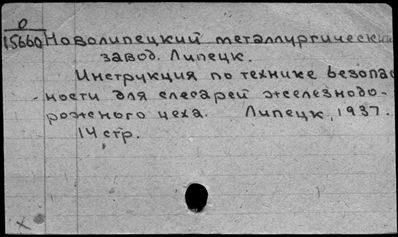 О
15660 Новолипецкий металлургический
завод. Липецк.
Инструкция по технике безопас
ности для слесарей железнодо-
рожного цеха. Липецк, 1937.
14 стр.